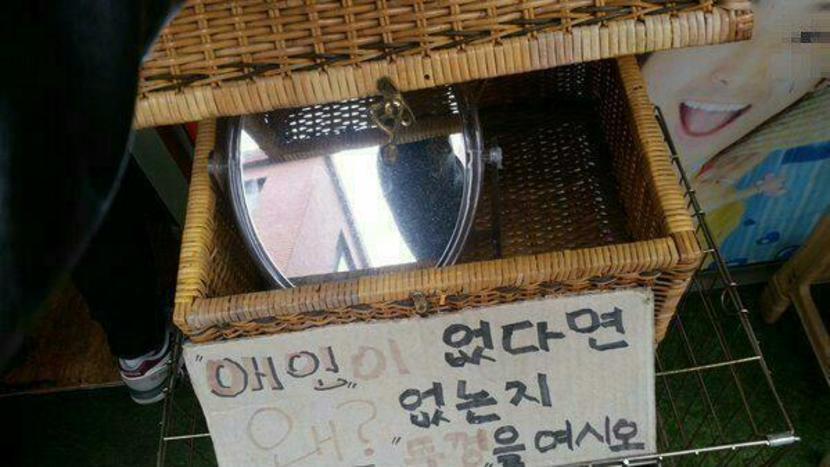 "애인"이 없다면
왜? 없는지
"뚜껑"을 여시오